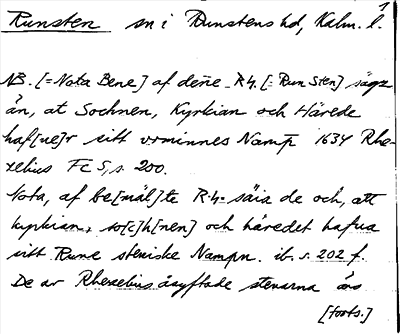 Runsten sn i Runstens hd, Kalm. l. 1
NB. [= Nota Bene] af deñe R4. [= Run Sten] säges
än, at Sochnen, Kyrkian och Härede
haf[ue]r sitt vrminnes Namp̄ 1634 Rhe-
zelius FC 5, s. 200.
Nota, af be[mäl]te R4= säia de och, att
kyrkian, so[c]h[nen] och häredet hafua
sitt Rune steniske Nampn. ib. s. 202 f.
De av Rhezelius åsyftade stenarna äro
[forts.]